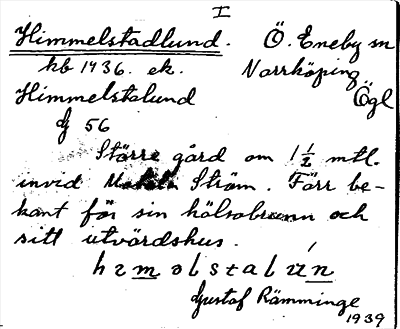 I
Himmelstadlund. Ö. Eneby sn
kb 1936. ek. Norrköping
Himmelstalund Ögl
Gj 56
Större gård om 1 1/2 mtl.
invid Motala Ström. Förr be-
kant för sin hälsobrunn och
sitt utvärdshus.
Gustaf Rämminge
1939